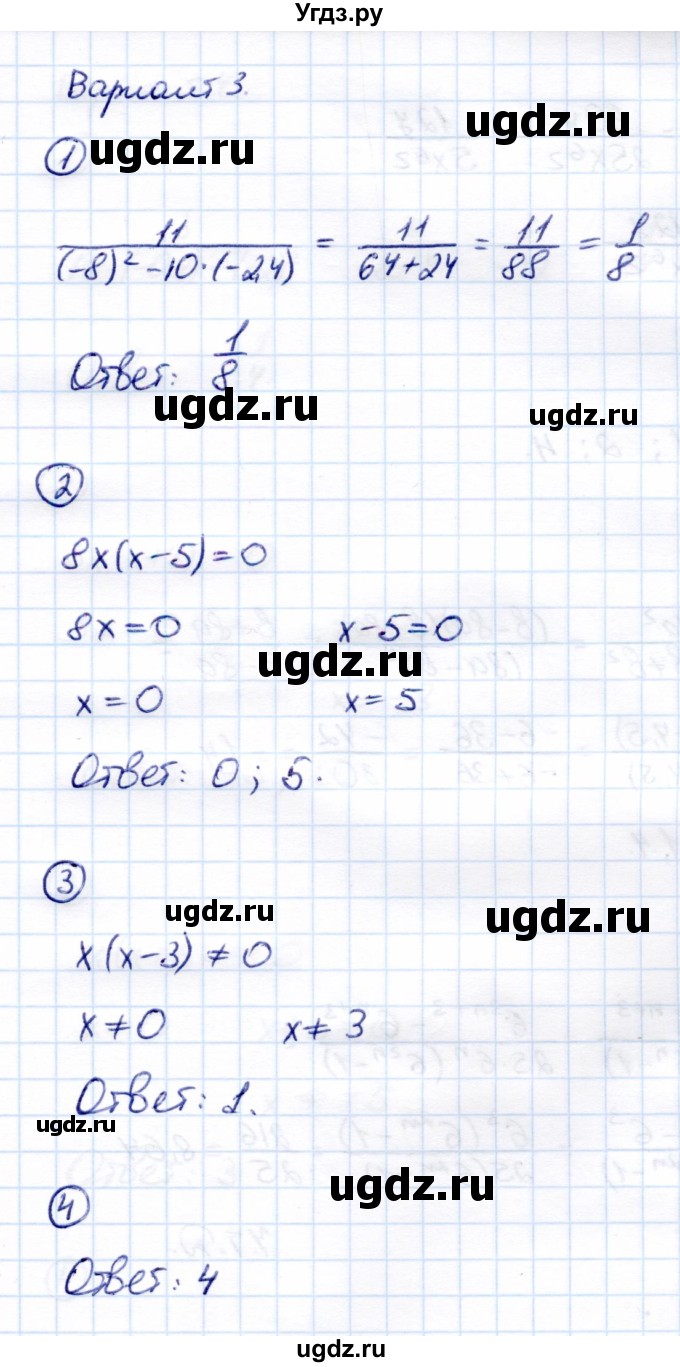 Угдз.ру
Вариант 3.
1 ugdz.ru ugdz.ru
11/((-8)² - 10·(-2,4)) = 11/(64+24) = 11/88 = 1/8
Ответ: 1/8
ugdz.ru ugdz.ru
2
8x(x-5)=0
8x=0 x-5=0
ugdz.ru
x=0 x=5
Ответ: 0; 5.
3
ugdz.ru ugdz.ru
x(x-3)≠0
x≠0 x≠3
Ответ: 1.
ugdz.ru
ugdz.ru
4
Ответ: 4
ugdz.ru